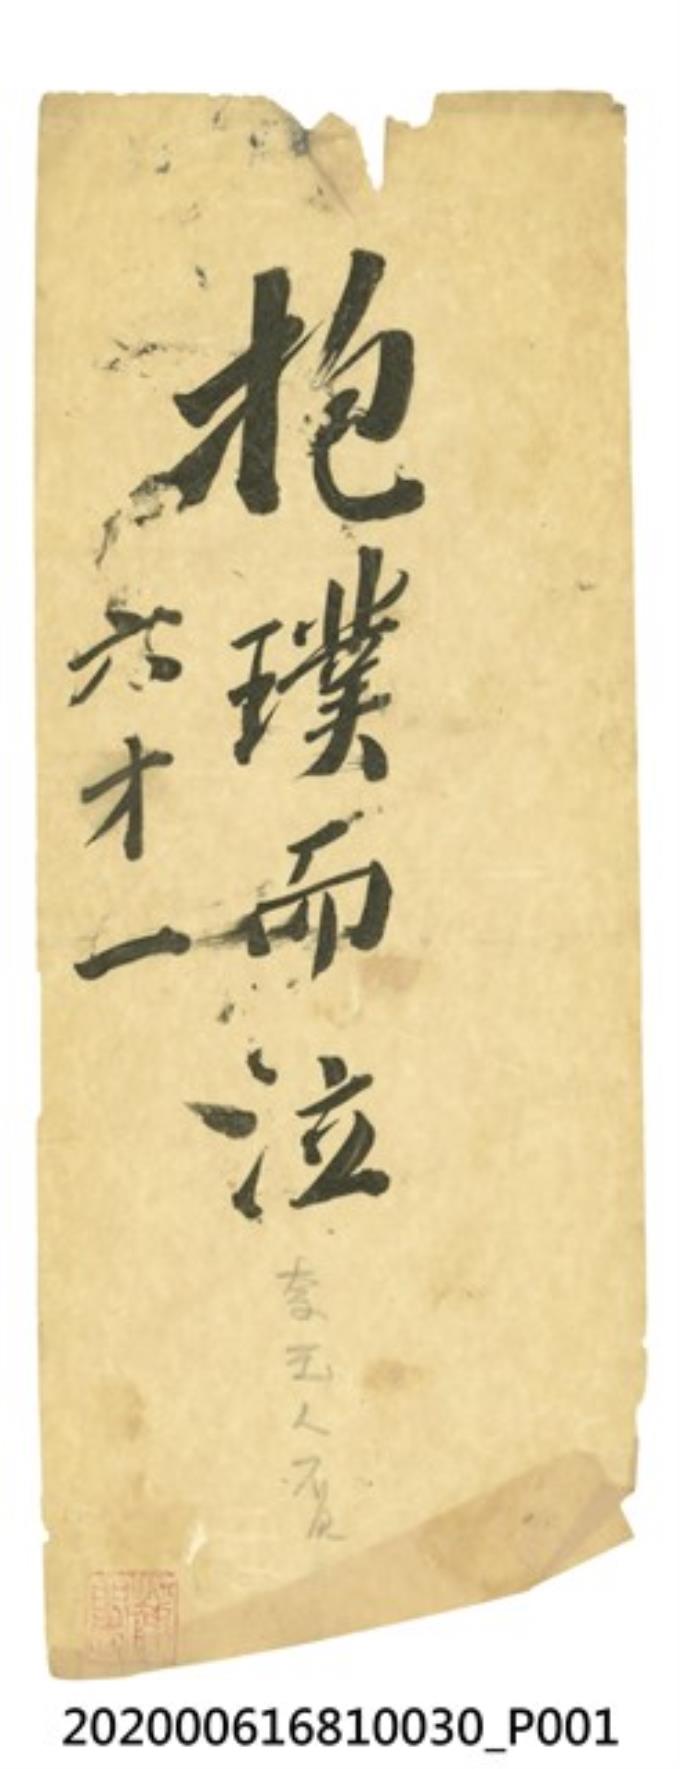 抱璞而泣
六才一
李玉人質
202000616810030_P001